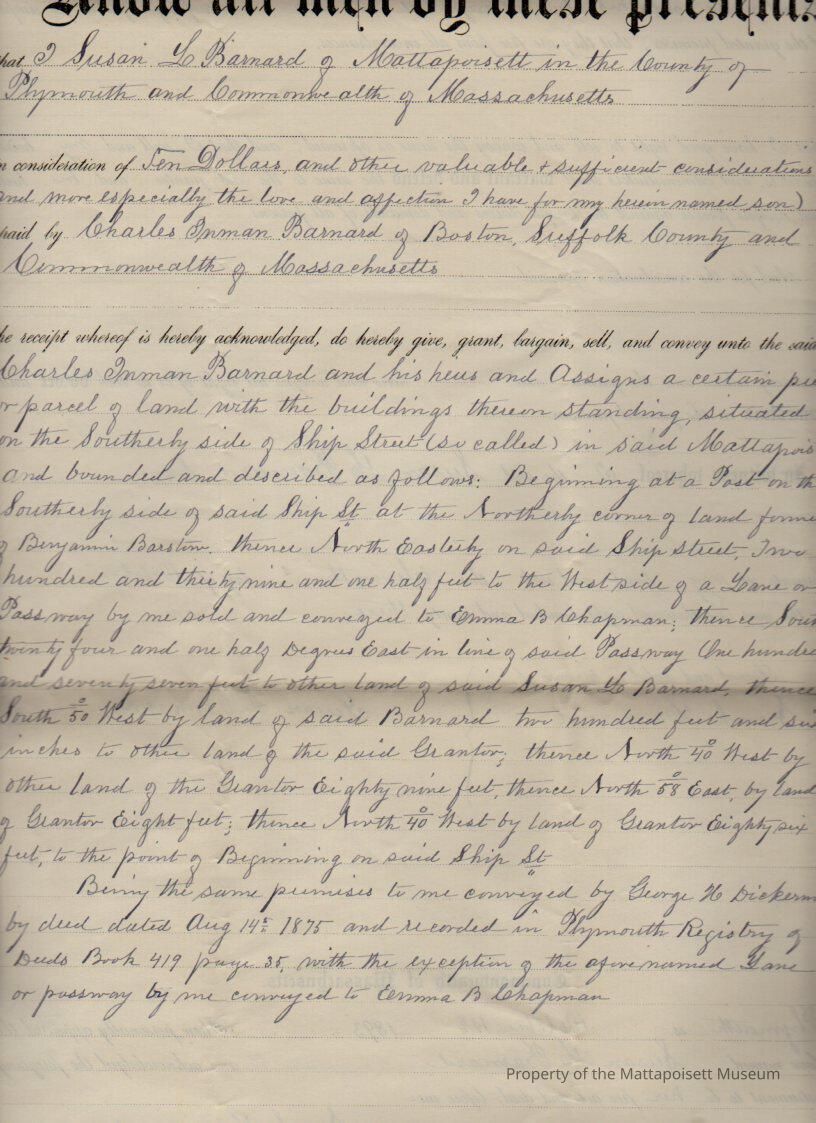 Know all men by these presents
hat I Susan L Barnard of Mattapoisett in the County of
Plymouth and Commonwealth of Massachusetts
n consideration of Ten Dollars, and other valuable + sufficient considerations
and more especially the love and affection I have for my herein named son)
paid by Charles Inman Barnard of Boston, Suffolk County and
Commonwealth of Massachusetts
he receipt whereof is hereby acknowledged, do hereby give, grant, bargain, sell, and convey unto the said
Charles Inman Barnard and his heirs and Assigns a certain pie
or parcel of land with the buildings thereon standing, situated
on the Southerly side of Ship Street (so called) in said Mattapois
and bounded and described as follows: Beginning at a Post on th
Southerly side of said Ship St at the Northerly corner of land forme
of Benjamin Barstow. thence North Easterly on said Ship street, Two
hundred and thirty nine and one half feet to the West side of a Lane or
Passway by me sold and conveyed to Emma B Chapman; thence Sout
twenty four and one half Degrees East in line of said Passway One hundre
and seventy seven feet to other land of said Susan L Barnard, thence
South 50° West by land of said Barnard two hundred feet and six
inches to other land of the said Grantor; thence North 40° West by
other land of the Grantor Eighty nine feet, thence North 58° East, by land
of Grantor Eight feet; thence North 40° West by land of Grantor Eighty six
feet, to the point of Beginning on said Ship St
Being the same premises to me conveyed by George H Dickerm
by deed dated Aug 14th 1875 and recorded in Plymouth Registry of
Deeds Book 419 page 35, with the exception of the afore named Lane
or passway by me conveyed to Emma B Chapman
Property of the Mattapoisett Museum